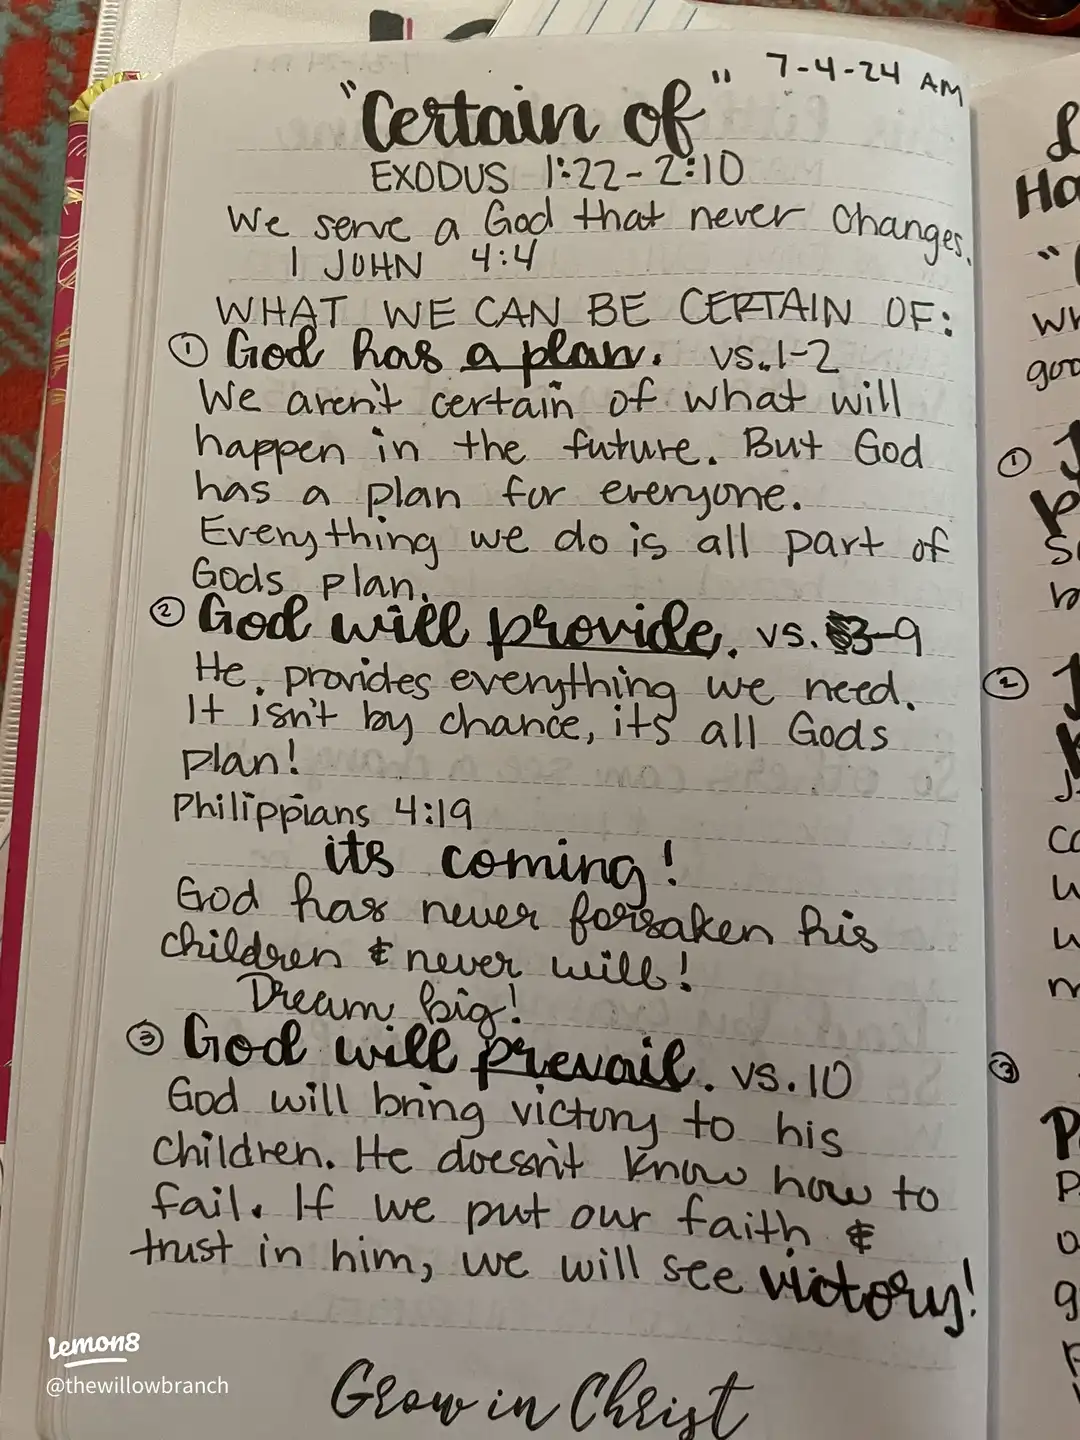 7-4-24 AM
"Certain of"
EXODUS 1:22-2:10
We serve a God that never changes.
1 JOHN 4:4
WHAT WE CAN BE CERTAIN OF:
① God has a plan. vs.1-2
We aren't certain of what will
happen in the future. But God
has a plan for everyone.
Everything we do is all part of
Gods plan.
② God will provide. vs. 3-9
He provides everything we need.
It isn't by chance, its all Gods
plan!
Philippians 4:19
its coming!
God has never forsaken his
children & never will!
Dream big!
③ God will prevail. vs.10
God will bring victory to his
children. He doesn't know how to
fail. If we put our faith &
trust in him, we will see victory!
Grow in Christ
Lemon8
@thewillowbranch
①
②
③